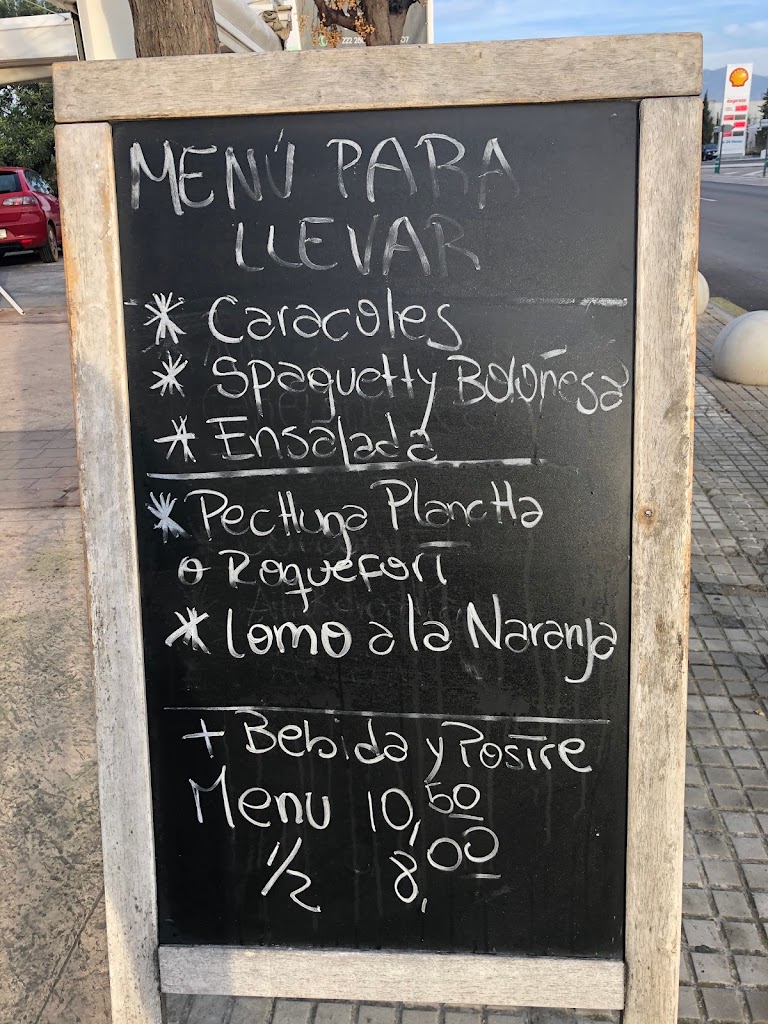 MENÚ PARA
LLEVAR
* Caracoles
* Spaguetty Boloñesa
* Ensalada
* Pechuga Plancha
o Roquefort
* Lomo a la Naranja
+ Bebida y Postre
Menu 10,50
1/2 8,00